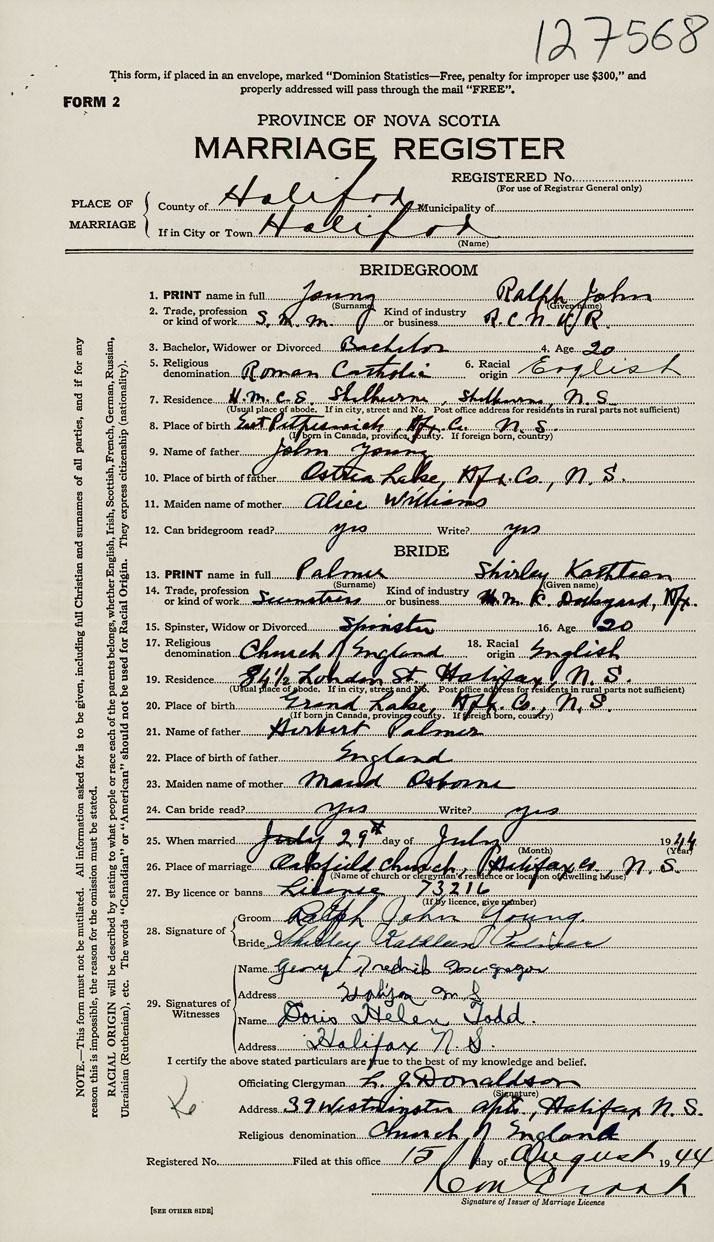 127568
This form, if placed in an envelope, marked "Dominion Statistics—Free, penalty for improper use $300," and
properly addressed will pass through the mail "FREE".
FORM 2
PROVINCE OF NOVA SCOTIA
MARRIAGE REGISTER
REGISTERED No.
(For use of Registrar General only)
PLACE OF MARRIAGE
County of Halifax Municipality of
If in City or Town Halifax
(Name)
BRIDEGROOM
1. PRINT name in full Young Ralph John
(Surname) (Given name)
2. Trade, profession or kind of work Kind of industry or business R.C.N.V.R.
3. Bachelor, Widower or Divorced Bachelor 4. Age 20
5. Religious denomination Roman Catholic 6. Racial origin English
7. Residence H.M.C.S. Shelburne, Shelburne, N.S.
(Usual place of abode. If in city, street and No. Post office address for residents in rural parts not sufficient)
8. Place of birth East Hfx. Co. N.S.
(If born in Canada, province, county. If foreign born, country)
9. Name of father John Young
10. Place of birth of father Ostrea Lake, Hfx. Co., N.S.
11. Maiden name of mother Alice Williams
12. Can bridegroom read? yes Write? yes
BRIDE
13. PRINT name in full Palmer Shirley Kathleen
(Surname) (Given name)
14. Trade, profession or kind of work Seamstress Kind of industry or business Dockyard, Hfx.
15. Spinster, Widow or Divorced Spinster 16. Age 20
17. Religious denomination Church of England 18. Racial origin English
19. Residence 84½ London St., Halifax, N.S.
(Usual place of abode. If in city, street and No. Post office address for residents in rural parts not sufficient)
20. Place of birth Grand Lake, Hfx. Co., N.S.
(If born in Canada, province, county. If foreign born, country)
21. Name of father Herbert Palmer
22. Place of birth of father England
23. Maiden name of mother Maud Osborne
24. Can bride read? yes Write? yes
25. When married July 29th day of July 1944
(Month) (Year)
26. Place of marriage Oakfield Church, Halifax Co., N.S.
(Name of church or clergyman's residence or location of dwelling house)
27. By licence or banns License 73216
(If by licence, give number)
28. Signature of
Groom Ralph John Young.
Bride Shirley Kathleen Palmer
29. Signatures of Witnesses
Name George
Address Halifax N.S.
Name Doris Helen Todd.
Address Halifax N.S.
I certify the above stated particulars are true to the best of my knowledge and belief.
Officiating Clergyman L. J. Donaldson
(Signature)
Address 39 Westminster Apts., Halifax N.S.
Religious denomination Church of England
Registered No. Filed at this office 15 day of August 1944
Signature of Issuer of Marriage Licence
[SEE OTHER SIDE]
NOTE.—This form must not be mutilated. All information asked for is to be given, including full Christian and surnames of all parties, and if for any
reason this is impossible, the reason for the omission must be stated.
RACIAL ORIGIN will be described by stating to what people or race each of the parents belongs, whether English, Irish, Scottish, French, German, Russian,
Ukrainian (Ruthenian), etc. The words "Canadian" or "American" should not be used for Racial Origin. They express citizenship (nationality).